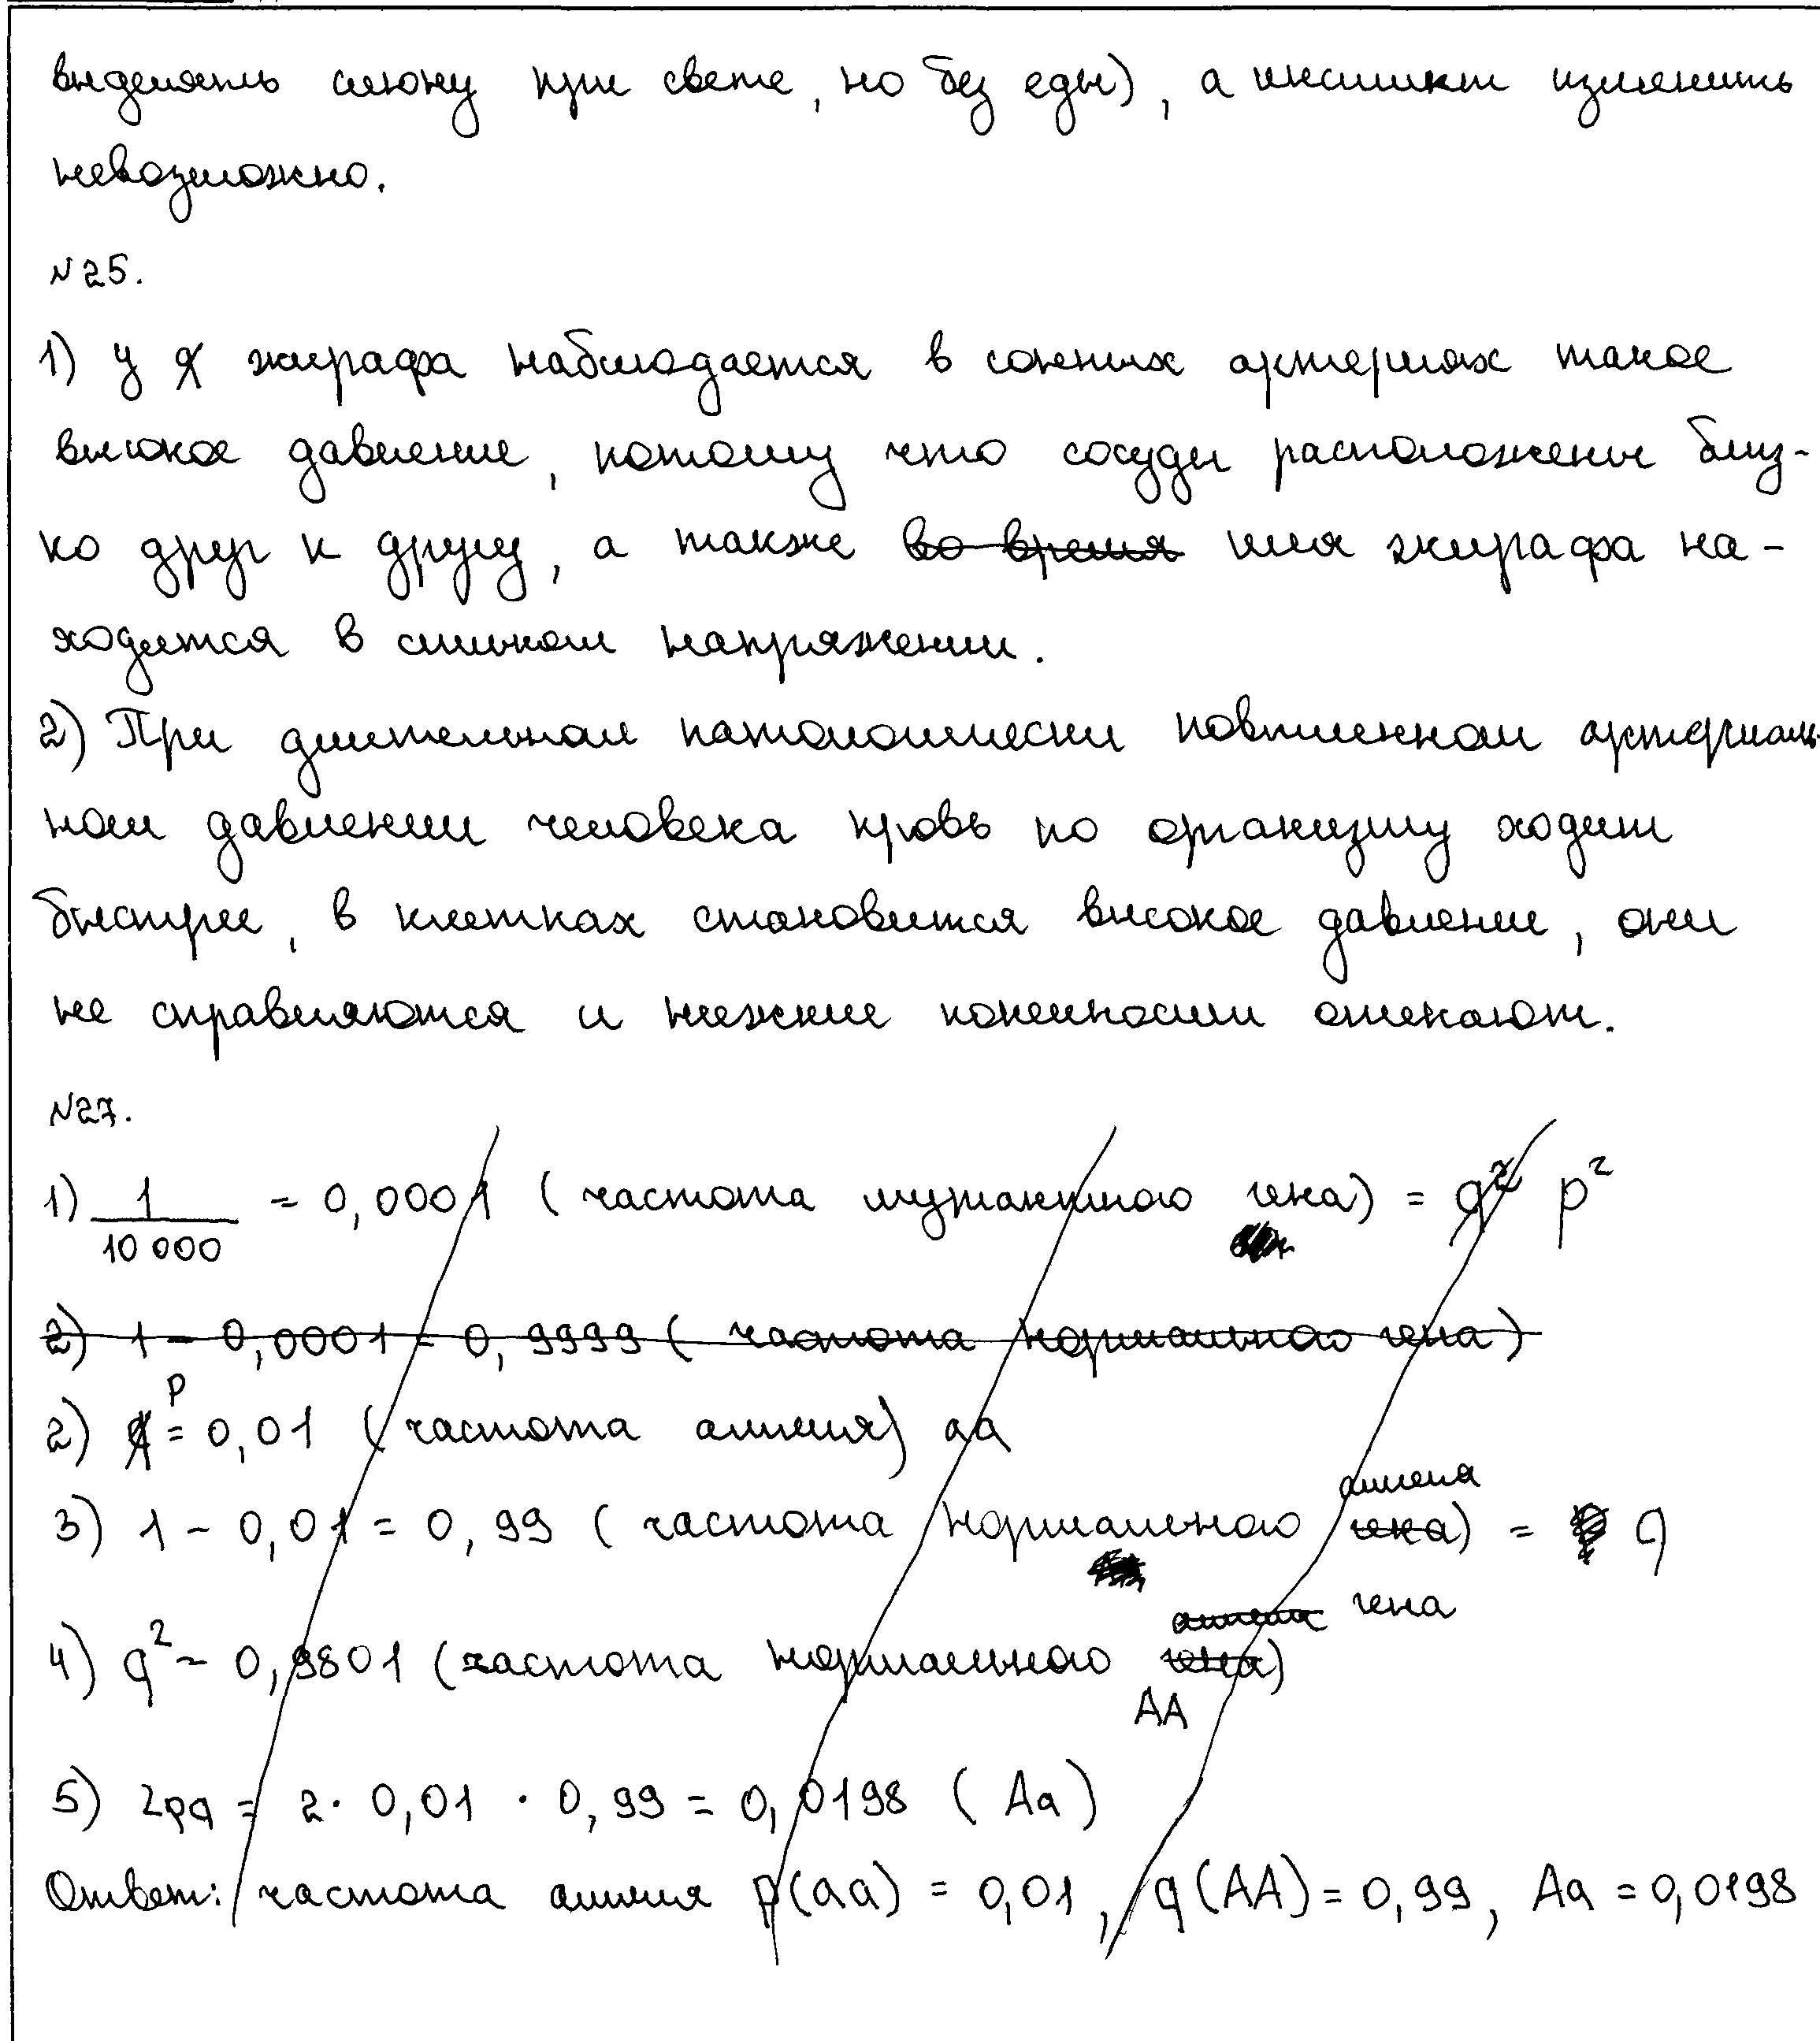 выделять слюну при свете, но без еды), а инстинкт изменить
невозможно.
N25.
1) у жирафа наблюдается в сонных артериях такое
высокое давление, потому что сосуды расположены близ-
ко друг к другу, а также во время шея жирафа на-
ходится в сильном напряжении.
2) При длительном патологически повышенном артериаль-
ном давлении человека кровь по организму ходит
быстрее, в клетках становится высокое давление, они
не справляются и нижние конечности отекают.
N27.
1) 1/10 000 = 0,0001 (частота мутантного гена) = q² p²
2) 1 - 0,0001 = 0,9999 (частота нормального гена)
2) q p = 0,01 (частота аллеля) aa
3) 1 - 0,01 = 0,99 (частота нормального гена аллеля) = q
4) q² = 0,9801 (частота нормального гена аллеля гена) AA
5) 2pq = 2 · 0,01 · 0,99 = 0,0198 (Aa)
Ответ: частота аллеля p(aa) = 0,01, q(AA) = 0,99, Aa = 0,0198